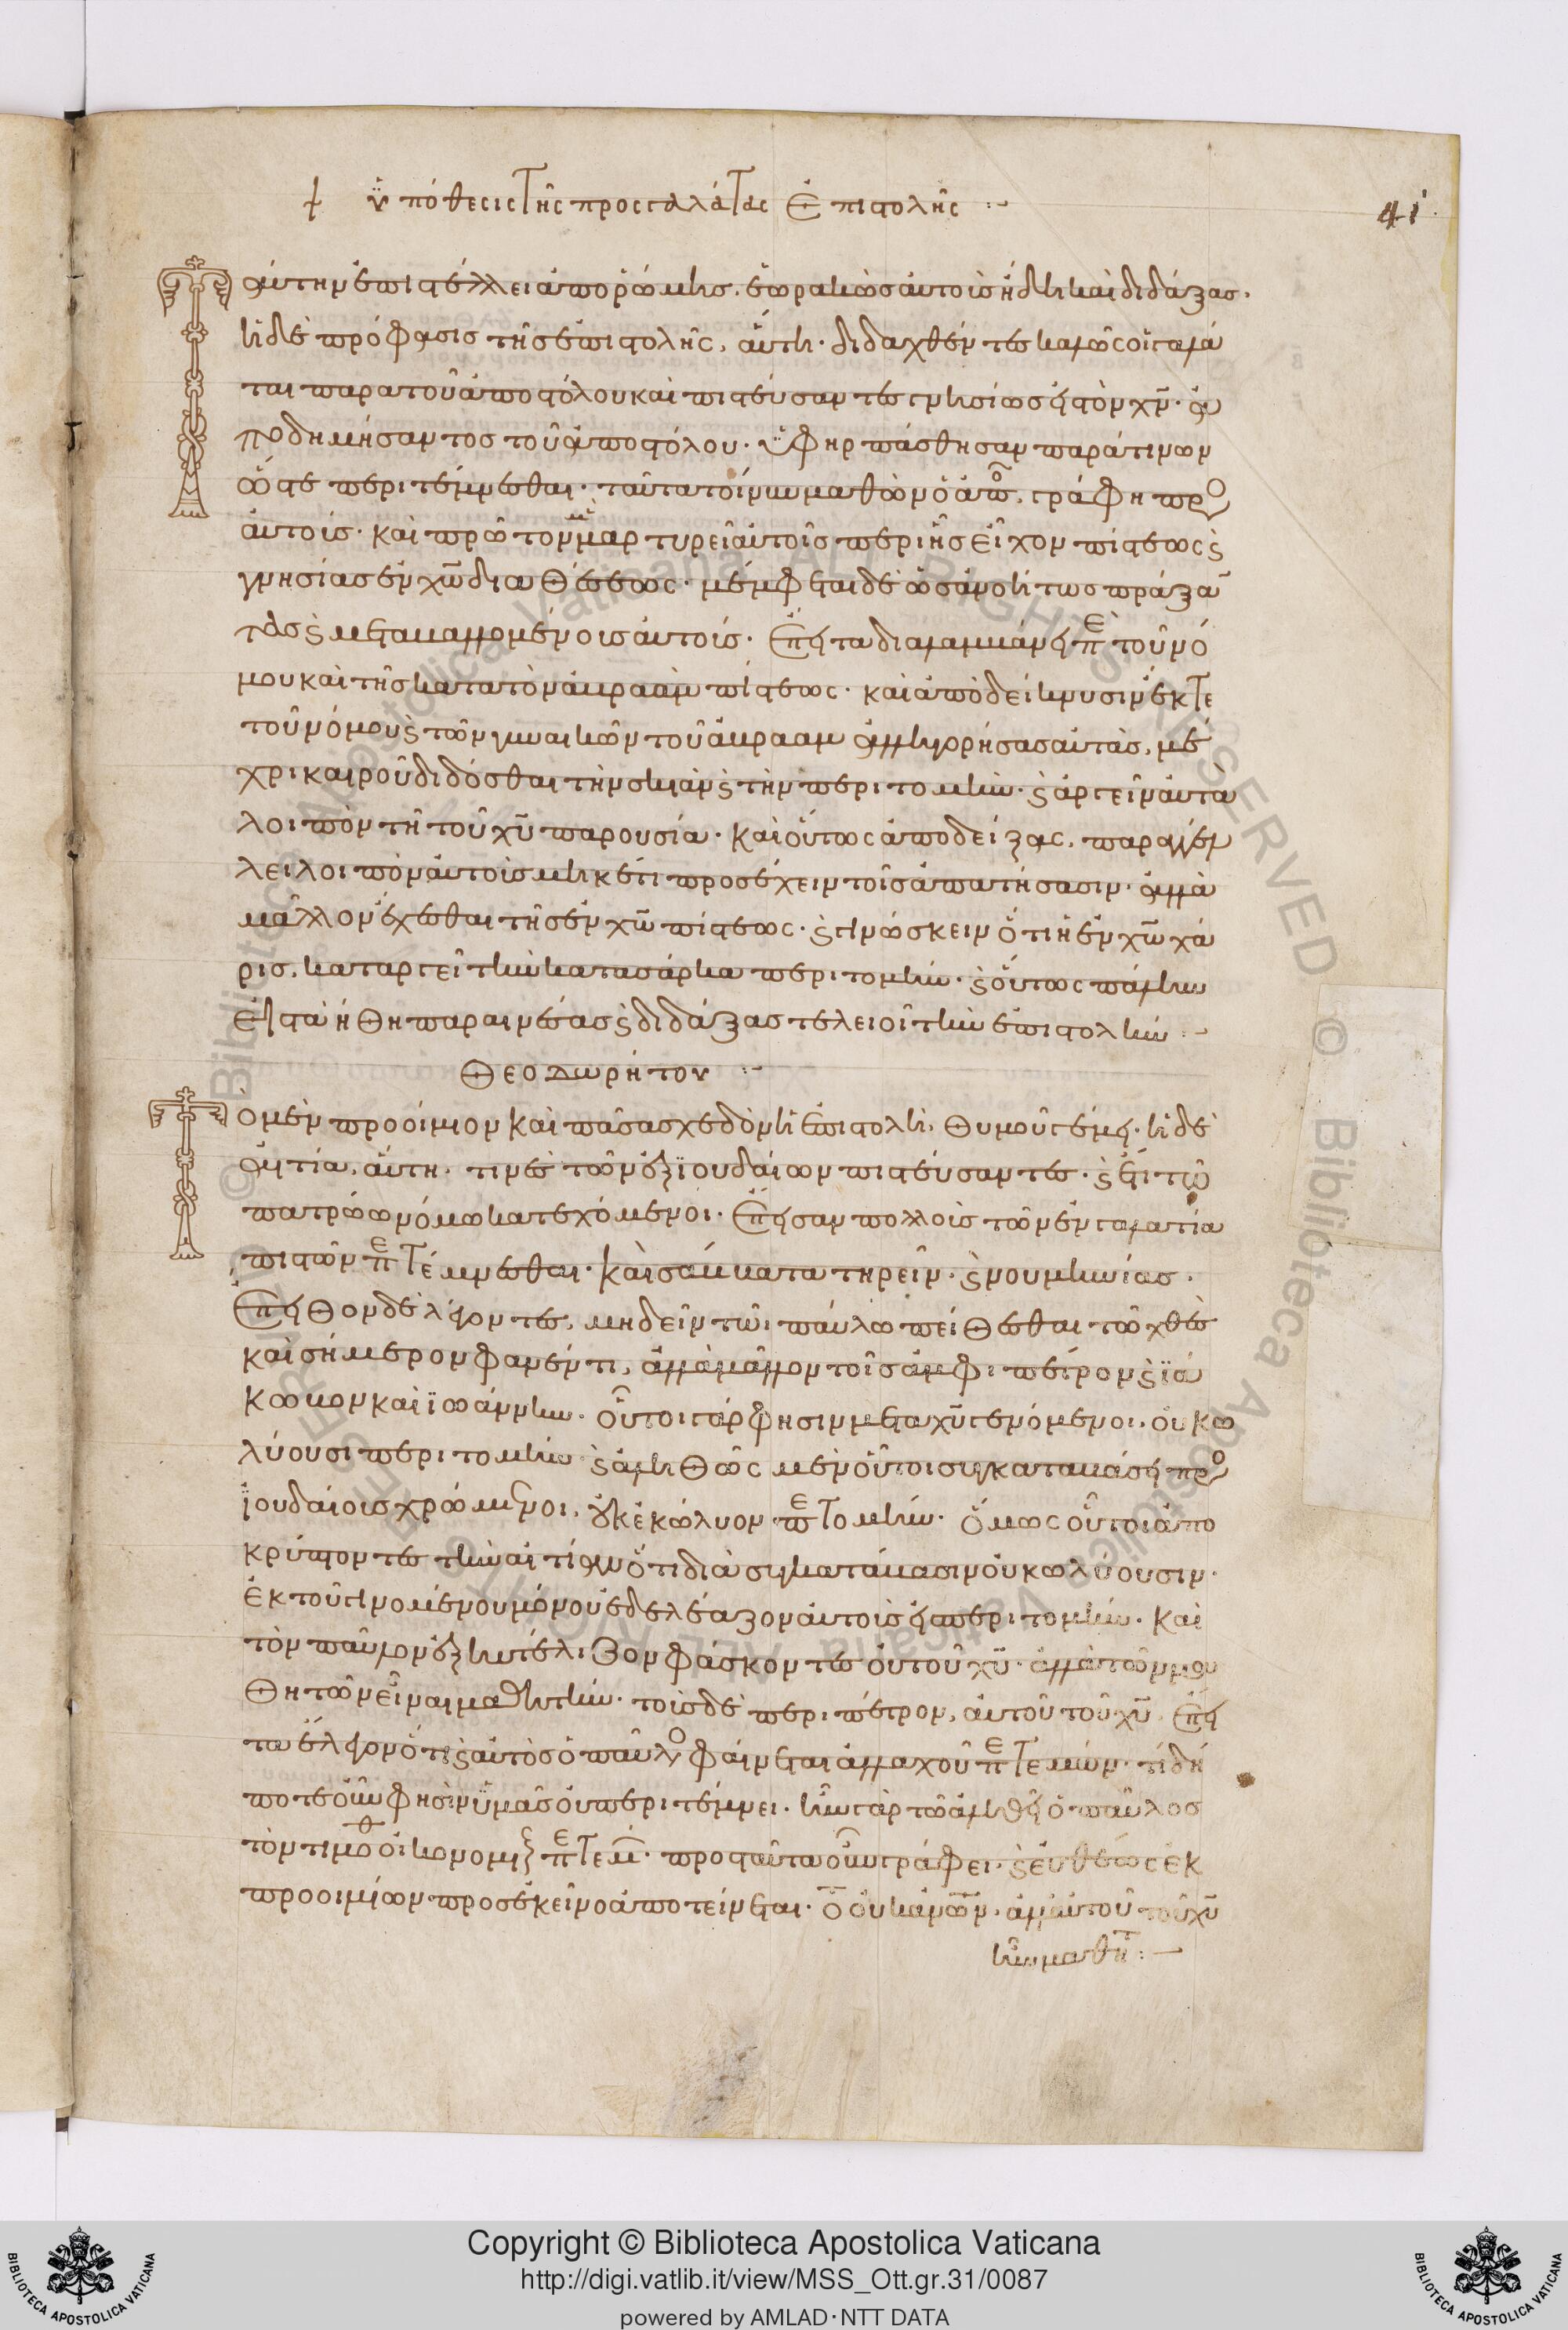 ὑπόθεσις τῆς προς γαλάτας ἐπιστολῆς
41
Ταύτην ἐπιστέλλει ἀπο ῥώμης. ἑωρακὼς αὐτοὺς ἤδη καὶ διδάξας.
ἡ δὲ πρόφασις τῆς ἐπιστολῆς, αὕτη. διδαχθέντες καλῶς οἱ γαλά
ται παρα τοῦ ἀποστόλου καὶ πιστεύσαντες γνησίως εἰς τὸν χν. ἀ
ποδημήσαντος τοῦ ἀποστόλου. ὑφηρπάσθησαν παρά τινων
ὥστε περιτέμνεσθαι. ταῦτα τοίνυν μαθὼν ὁ ἀπο, γράφη προ
αὐτοὺς. καὶ πρῶτον μὲν μαρτυρεῖ αὐτοῖς περι ἧς εἶχον πίστεως καὶ
γνησίας ἐν χω διαθέσεως. μέμφεται δὲ ὡς ἀνοήτως πράξαν
τας καὶ μεταβαλλομένοις αὐτοὺς. ἔπειτα διαλαμβάνει περὶ τοῦ νό
μου καὶ τῆς κατα τὸν ἀβραὰμ πίστεως. καὶ ἀποδείκνυσιν ἐκ τε
τοῦ νόμου καὶ τῶν γυναικῶν τοῦ ἀβρααμ ἀλληγορήσας αὐτὰς, μέ
χρι καιροῦ διδόσθαι τὴν σκιὰν καὶ τὴν περιτομήν. καὶ ἀργεῖν αὐτὰ
λοιπὸν τῆ τοῦ χυ παρουσία. καὶ οὕτως ἀποδείξας, παραγγέλ
λει λοιπὸν αὐτοὺς μηκέτι προσέχειν τοῖς ἀπατήσασιν. ἀλλὰ
μᾶλλον ἔχεσθαι τῆς ἐν χω πίστεως. καὶ γινώσκειν ὅτι ἡ ἐν χω χά
ρις, καταργεῖ τὴν κατα σάρκα περιτομήν. καὶ οὕτως πάλιν
εἰς τὰ ἤθη παραινέσας καὶ διδάξας τελειοῖ τὴν ἐπιστολήν
Θεοδωρήτου
Τὸ μὲν προοίμιον καὶ πᾶσα σχεδὸν ἡ ἐπιστολὴ, θυμοῦ γέμει. ἡ δὲ
αἰτία, αὕτη. τινὲς τῶν ἐξ ἰουδαίων πιστεύσαντες. καὶ ἔτι τῶ
πατρώω νόμω κατεχόμενοι. ἔπεισαν πολλοὺς τῶν ἐν γαλατία
πιστῶν περιτέμνεσθαι. καὶ σάββατα τηρεῖν. καὶ νουμηνίας.
ἔπειθον δὲ λέγοντες, μη δεῖν τῶι παύλω πείθεσθαι τῶ χθὲς
καὶ σήμερον φανέντι, ἀλλὰ μᾶλλον τοῖς ἀμφι πέτρον καὶ ϊά
κωβον καὶ ϊωάννην. οὗτοι γάρ φησιν μετα χυ γενόμενοι. οὐ κω
λύουσι περιτομὴν καὶ ἀληθῶς μὲν οὗτοι συγκαταβάσει προ
ϊουδαίους χρώμενοι, οὐκ ἐκώλυον περιτομήν. ὅμως οὗτοι ἀπο
κρύπτοντες τὴν αἰτίαν ὅτι δια συγκατάβασιν οὐ κωλύουσιν.
ἐκ τοῦ γινομένου μόνου ἐδελέαζον αὐτοὺς εἰς περιτομήν. καὶ
τὸν παῦλον ἐξηυτέλιζον φάσκοντες οὐ τοῦ χυ. ἀλλὰ τῶν μα
θητῶν εἶναι μαθητήν. τοὺς δὲ περι πέτρον, αὐτοῦ τοῦ χυ. ἔπει
τα ἔλεγον ὅτι καὶ αὐτὸς ὁ παῦλο φαίνεται ἀλλαχοῦ περιτεμών. τί δή
ποτε οὖν φησὶν ὑμᾶς οὐ περιτέμνει. ἦν γὰρ τῶ ἀληθεῖ ὁ παῦλος
τὸν τιμόθ οἰκονομι περιτεμ. προς ταῦτα οὖν γράφει. καὶ εὐθέως ἐκ
προοιμίων προς ἐκεῖνο ἀποτείνεται. ὅτι οὐκ ἀνων, ἀλλ αὐτοῦ τοῦ χυ
ἦν μαθητ
Copyright © Biblioteca Apostolica Vaticana
http://digi.vatlib.it/view/MSS_Ott.gr.31/0087
powered by AMLAD·NTT DATA